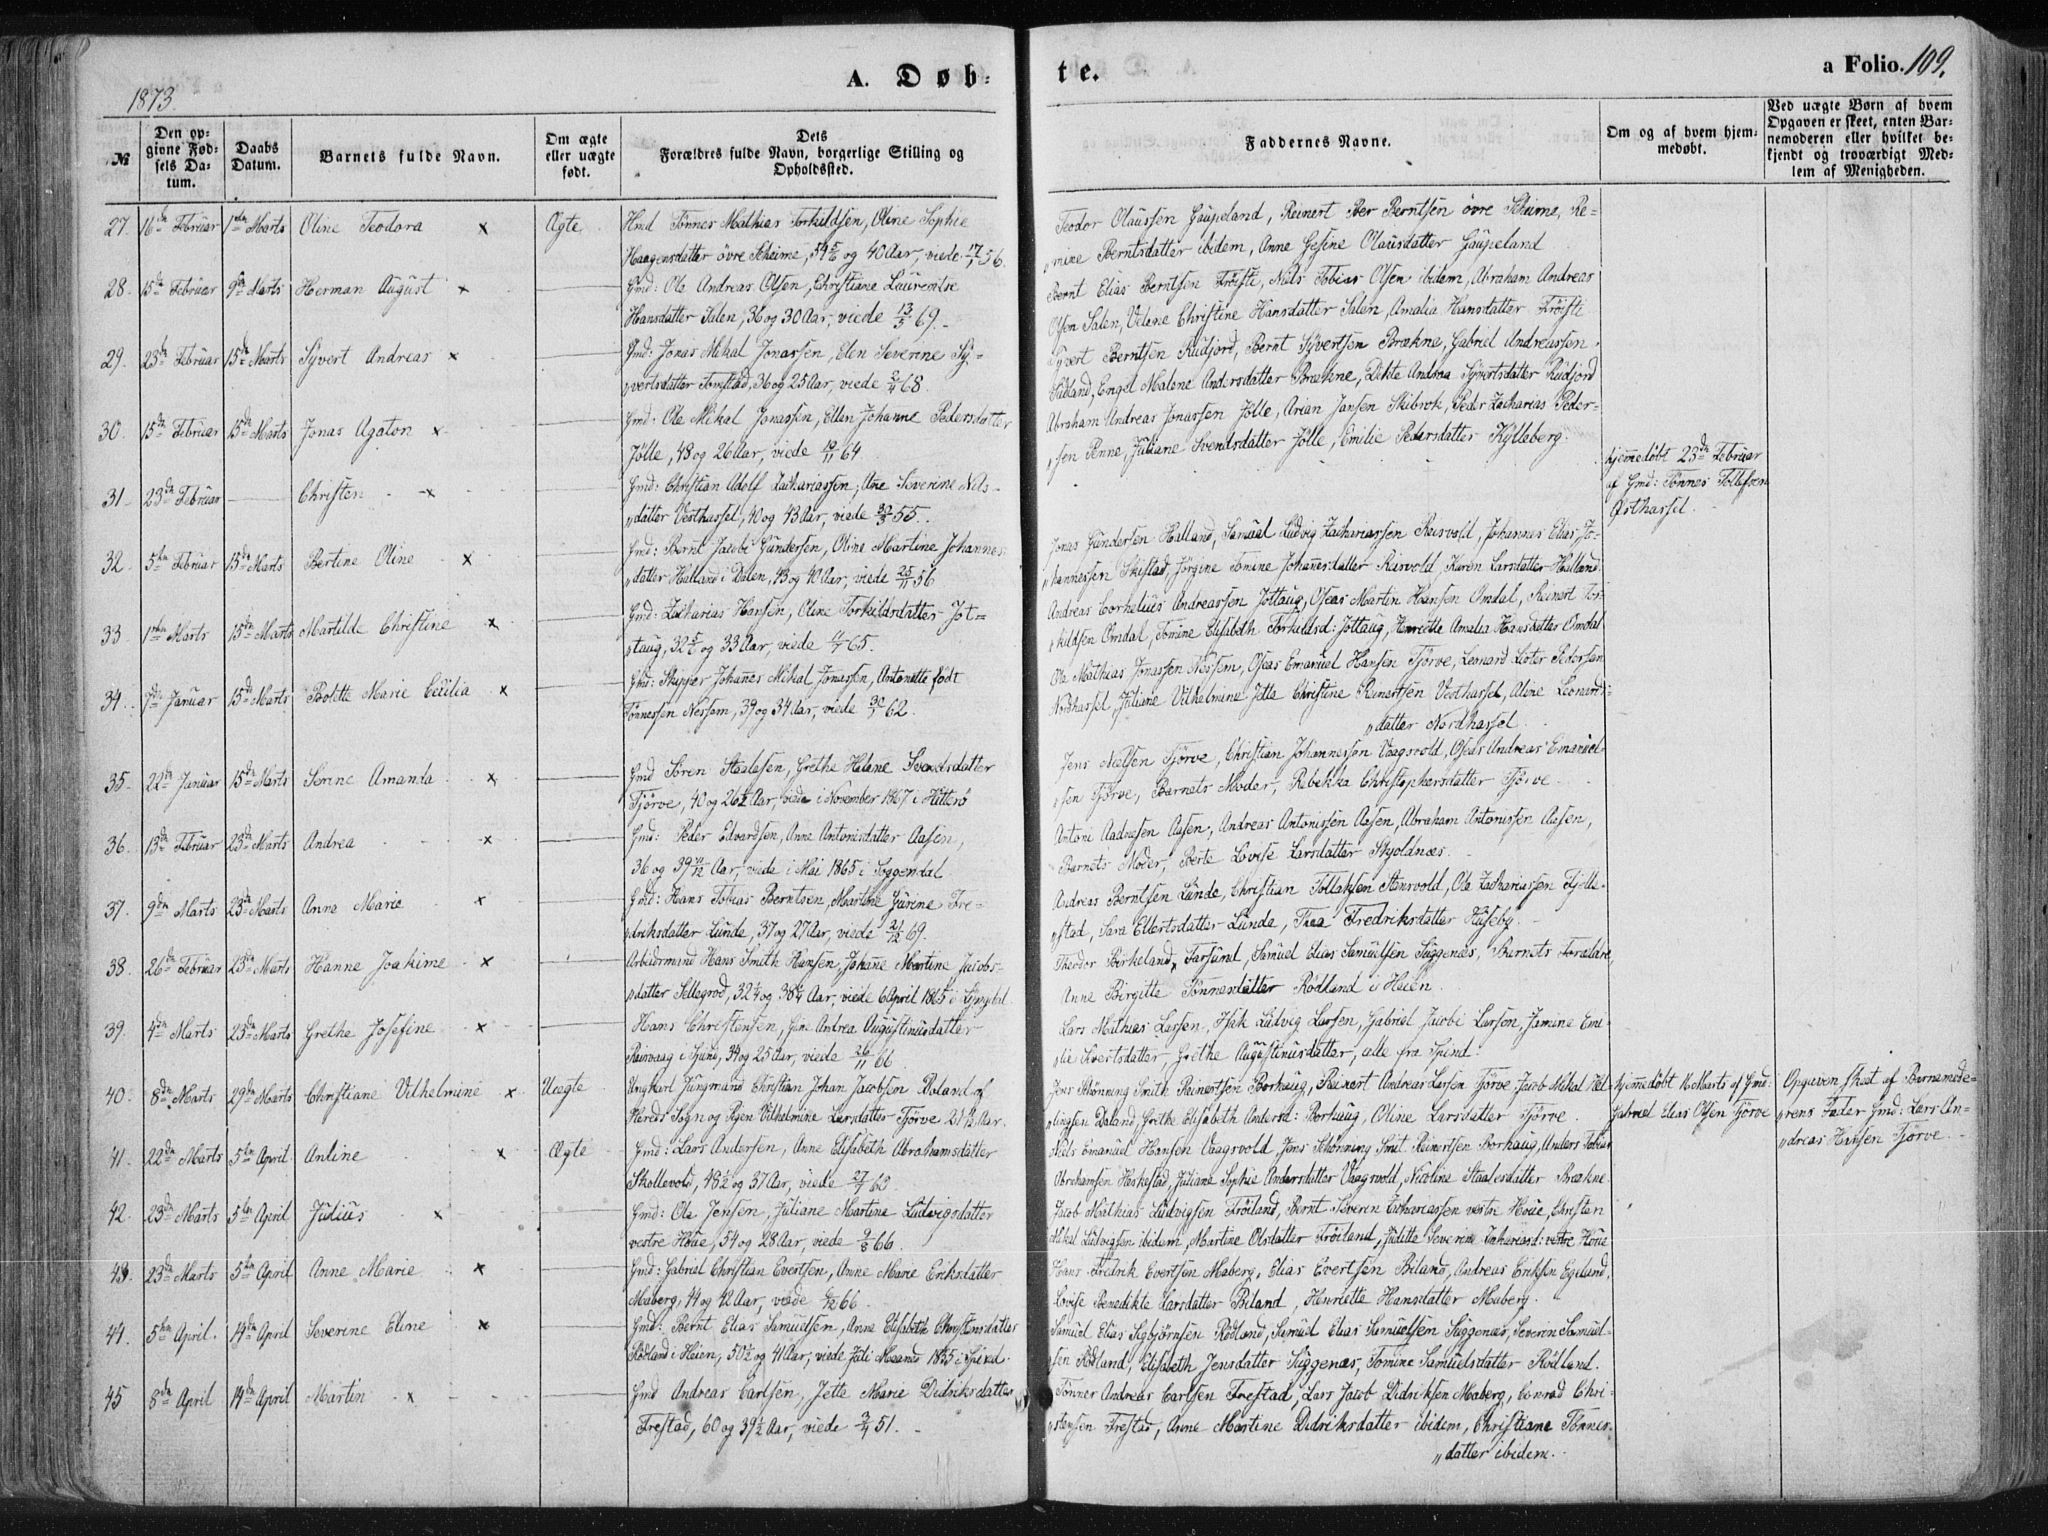 1873.
A. Døb-
te.
a Folio. 109.
№
Den op-
givne Fød-
sels Da-
tum.
Daabs
Datum.
Barnets fulde Navn.
Om ægte
eller uægte
født.
Dets
Forældres fulde Navn, borgerlige Stilling og
Opholdssted.
Faddernes Navne.
Om og af hvem hjem-
medøbt.
Ved uægte Børn af hvem
Opgaven er skeet, enten Bar-
nemoderen eller hvilket be-
kjendt og troværdigt Med-
lem af Menigheden.
27. 16de Februar 1ste Marts Oline Teodora x Ægte Hmd Tönnes Mathias Torkildsen, Oline Sophie
Haagensdatter övre Skeime, og 40 Aar, viede 56.
Teodor Olaussen Gaupeland, Reinert Berntsen övre Skeime, Re-
"mine Berntsdatter ibidem, Anne Gesine Olausdatter Gaupeland
28. 15de Februar 9de Marts Herman August x Gmd: Ole Andreas Olsen, Christiane Laurentse
Hansdatter Salen, 36 og 30 Aar, viede 13/5 69.
Bernt Elias Berntsen Fröisti, Nils Tobias Olsen ibidem, Abraham Andreas
Olsen Salen, Vilene Christine Hansdatter Salen, Amalia Hansdatter Fröisti
29. 23de Februar 15de Marts Syvert Andreas x Gmd: Jonas Mikal Jonassen, Elen Severine Sy-
"vertsdatter Tomstad, 36 og 25 Aar, viede 68.
Syvert Berntsen Rudjord, Bernt Syvertsen Brækne, Gabriel Andreassen
Sædland, Engel Malene Andersdatter Brækne, Dikte Andrea Syvertsdatter Rudjord
30. 15de Februar 15de Marts Jonas Agaton x Gmd: Ole Mikal Jonassen, Ellen Johanne Pedersdatter
Jölle, 48 og 26 Aar, viede 10/11 64.
Abraham Andreas Jonassen Jölle, Arian Jansen Skibrok, Peder Zacharias Peder-
"sen Penne, Juliane Svendsdatter Jölle, Emilie Pedersdatter Kylleberg.
31. 23de Februar Christen x Gmd: Christian Adolf Zachariassen, Ane Severine Nils-
"datter Vesthassel, 40 og 43 Aar, viede 30/3 55.
hjemmedöbt 23de Februar
af Gmd: Tönnes Tollefsen
Östhassel.
32. 5te Februar 15de Marts Bertine Oline x Gmd: Bernt Jacobi Gundersen, Oline Martine Johannes-
"datter Halland i Dalen, 43 og 40 Aar, viede 25/11 56
Jonas Gundersen Halland, Samual Ludvig Zachariassen Reisvold, Johannes Elias Jo-
"hannessen Skistad, Jörgine Tomine Johannesdatter Reisvold, Karen Larsdatter Halland.
33. 1ste Marts 15de Marts Martilde Christine x Gmd: Zacharias Hansen, Oline Torkildsdatter Jot-
"taug, 32 og 33 Aar, viede 65.
Andreas Cornelius Andreassen Jottaug, Oseas Martin Hansen Omdal, Reinert Tor-
"kildsen Omdal, Tomine Elisabeth Torkildsd: Jottaug, Henriette Amalia Hansdatter Omdal
34. 7de Januar 15de Marts Bolette Marie Cecilia x Gmd: Skipper Johannes Mikal Jonassen, Antonette födt
Tönnessen Nessem, 39 og 34 Aar, viede 62.
Ole Mathias Jonassen Nessem, Oseas Emanuel Hansen Tjörve, Leonard Pedersen
Nordhassel, Juliane Vilhelmine Jette Christine Reinertsen Vesthassel, Aline Leonards-
"datter Nordhassel
35. 22de Januar 15de Marts Serine Amanda x Gmd Sören Staalesen, Grethe Helene Svendsdatter
Tjörve, 40 og 26 Aar, viede i November 1867 i Hitterö
Jens Nilsen Tjörve, Christian Johannessen Vaagsvold, Oseas Andreas Emanuel-
"sen Tjörve, Barnets Moder, Rebekka Christophersdatter Tjörve
36. 13de Februar 23de Marts Andrea x Gmd: Peder Edvardsen, Anne Antonisdatter Aasen,
36 og 39 Aar, viede i Mai 1865 i Soggendal
Antoni Aadnesen Aasen, Andreas Antonissen Aasen, Abraham Antonissen Aasen,
Barnets Moder, Berte Lovise Larsdatter Skjoldnæs.
37. 9de Marts 23de Marts Anna Marie x Gmd: Hans Tobias Berntsen, Martine Gurine Fre-
driksdatter Lunde, 37 og 27 Aar, viede 21/12 69.
Andreas Berntsen Lunde, Christian Tollaksen Stensvold, Ole Zachariassen Fjelle-
"stad, Sara Ellertsdatter Lunde, Thea Fredriksdatter Huseby.
38. 26de Februar 23de Marts Hanne Joakime x Arbeidsmand Hans Smith Hansen, Johanne Martine Jacobs-
"datter Sellegrod, 32 og 38 Aar, viede 6 April 1865 i Lyngdal.
Theodor Birkeland, Farsund, Samuel Elias Samuelsen Siggenæs, Barnets Forældre,
Anne Birgitte Tönnesdatter Rödland i Heien.
39. 4de Marts 23de Marts Grethe Josefine x Hans Christensen, Gine Andrea Augustinusdatter
Reisvaag i Spind, 34 og 25 Aar, viede 26/11 66
Lars Mathias Larsen, Isak Ludvig Larsen, Gabriel Jacobi Larsen, Jamine Emi-
"lie Sivertsdatter, Grethe Augustinusdatter, alle fra Spind.
40. 8de Marts 29de Marts Christiane Vilhelmine x Uægte Ungkarl Jungmand Christian Johan Jacobsen Daland af
Hereds Sogn og Pigen Vilhelmine Larsdatter Tjörve 21 Aar.
Jens Skönning Smith Reinertsen Borhaug, Reinert Andreas Larsen Tjörve, Jacob Mikal
"lingsen Daland, Grethe Elisabeth Andersd: Borhaug, Oline Larsdatter Tjörve
hjemmedöbt Marts af Gmd:
Gabriel Elias Olsen Tjörve
Opgaven skeet af Barnemode-
"rens Fader Gmd: Lars An-
"dreas Hansen Tjörve.
41. 22de Marts 5te April Anline x Ægte Gmd: Lars Andersen, Anne Elisabeth Abrahamsdatter
Skollevold, 48 og 37 Aar, viede 63
Nils Emanuel Hansen Vaagsvold, Jens Schönning Smit Reinertsen Borhaug, Anders Tobias
Abrahamsen Heskestad, Juliane Sophie Andersdatter Vaagsvold, Nicoline Staalesdatter Brækne.
42. 23de Marts 5te April Julius x Gmd: Ole Jensen, Juliane Martine Ludvigsdatter
vestre Houe, 54 og 28 Aar, viede 9/8 66.
Jacob Mathias Ludvigsen Fröiland, Bernt Severin Zachariassen vestre Houe, Christen
Mikal Ludvigsen ibidem, Martine Olsdatter Fröiland, Juditte Severine Zachariasd: vestre Houe
43. 23de Marts 5te April Anne Marie x Gmd: Gabriel Christian Evertsen, Anne Marie Eriksdatter
Maberg, 44 og 42 Aar, viede 66.
Hans Fredrik Evertsen Maberg, Elias Evertsen Biland, Andreas Eriksen Egeland,
Lovise Benedikte Larsdatter Biland, Henriette Hansdatter Maberg.
44. 5te April. 14de April Severine Eline x Gmd: Bernt Elias Samuelsen, Anne Elisabeth Christensdatter
Rödland i Heien, 50 og 41 Aar, viede Juli Maaned 1855 i Spind.
Samuel Elias Sigbjörnsen Rödland, Samuel Elias Samuelsen Siggenæs, Severin Samuel-
"sen Rödland, Elisabeth Jensdatter Siggenæs, Tomine Samuelsdatter Rödland.
45 8de April 14de April Martin x Gmd Andreas Carlsen, Jette Marie Didriksdatter
Frestad, 60 og 39½ Aar, viede 51.
Tönnes Andreas Carlsen Frestad, Lars Jacob Didriksen Maberg, Conrad Chri-
"stensen Frestad, Anne Martine Didriksdatter ibidem, Christiane Tönnes-
"datter ibidem.